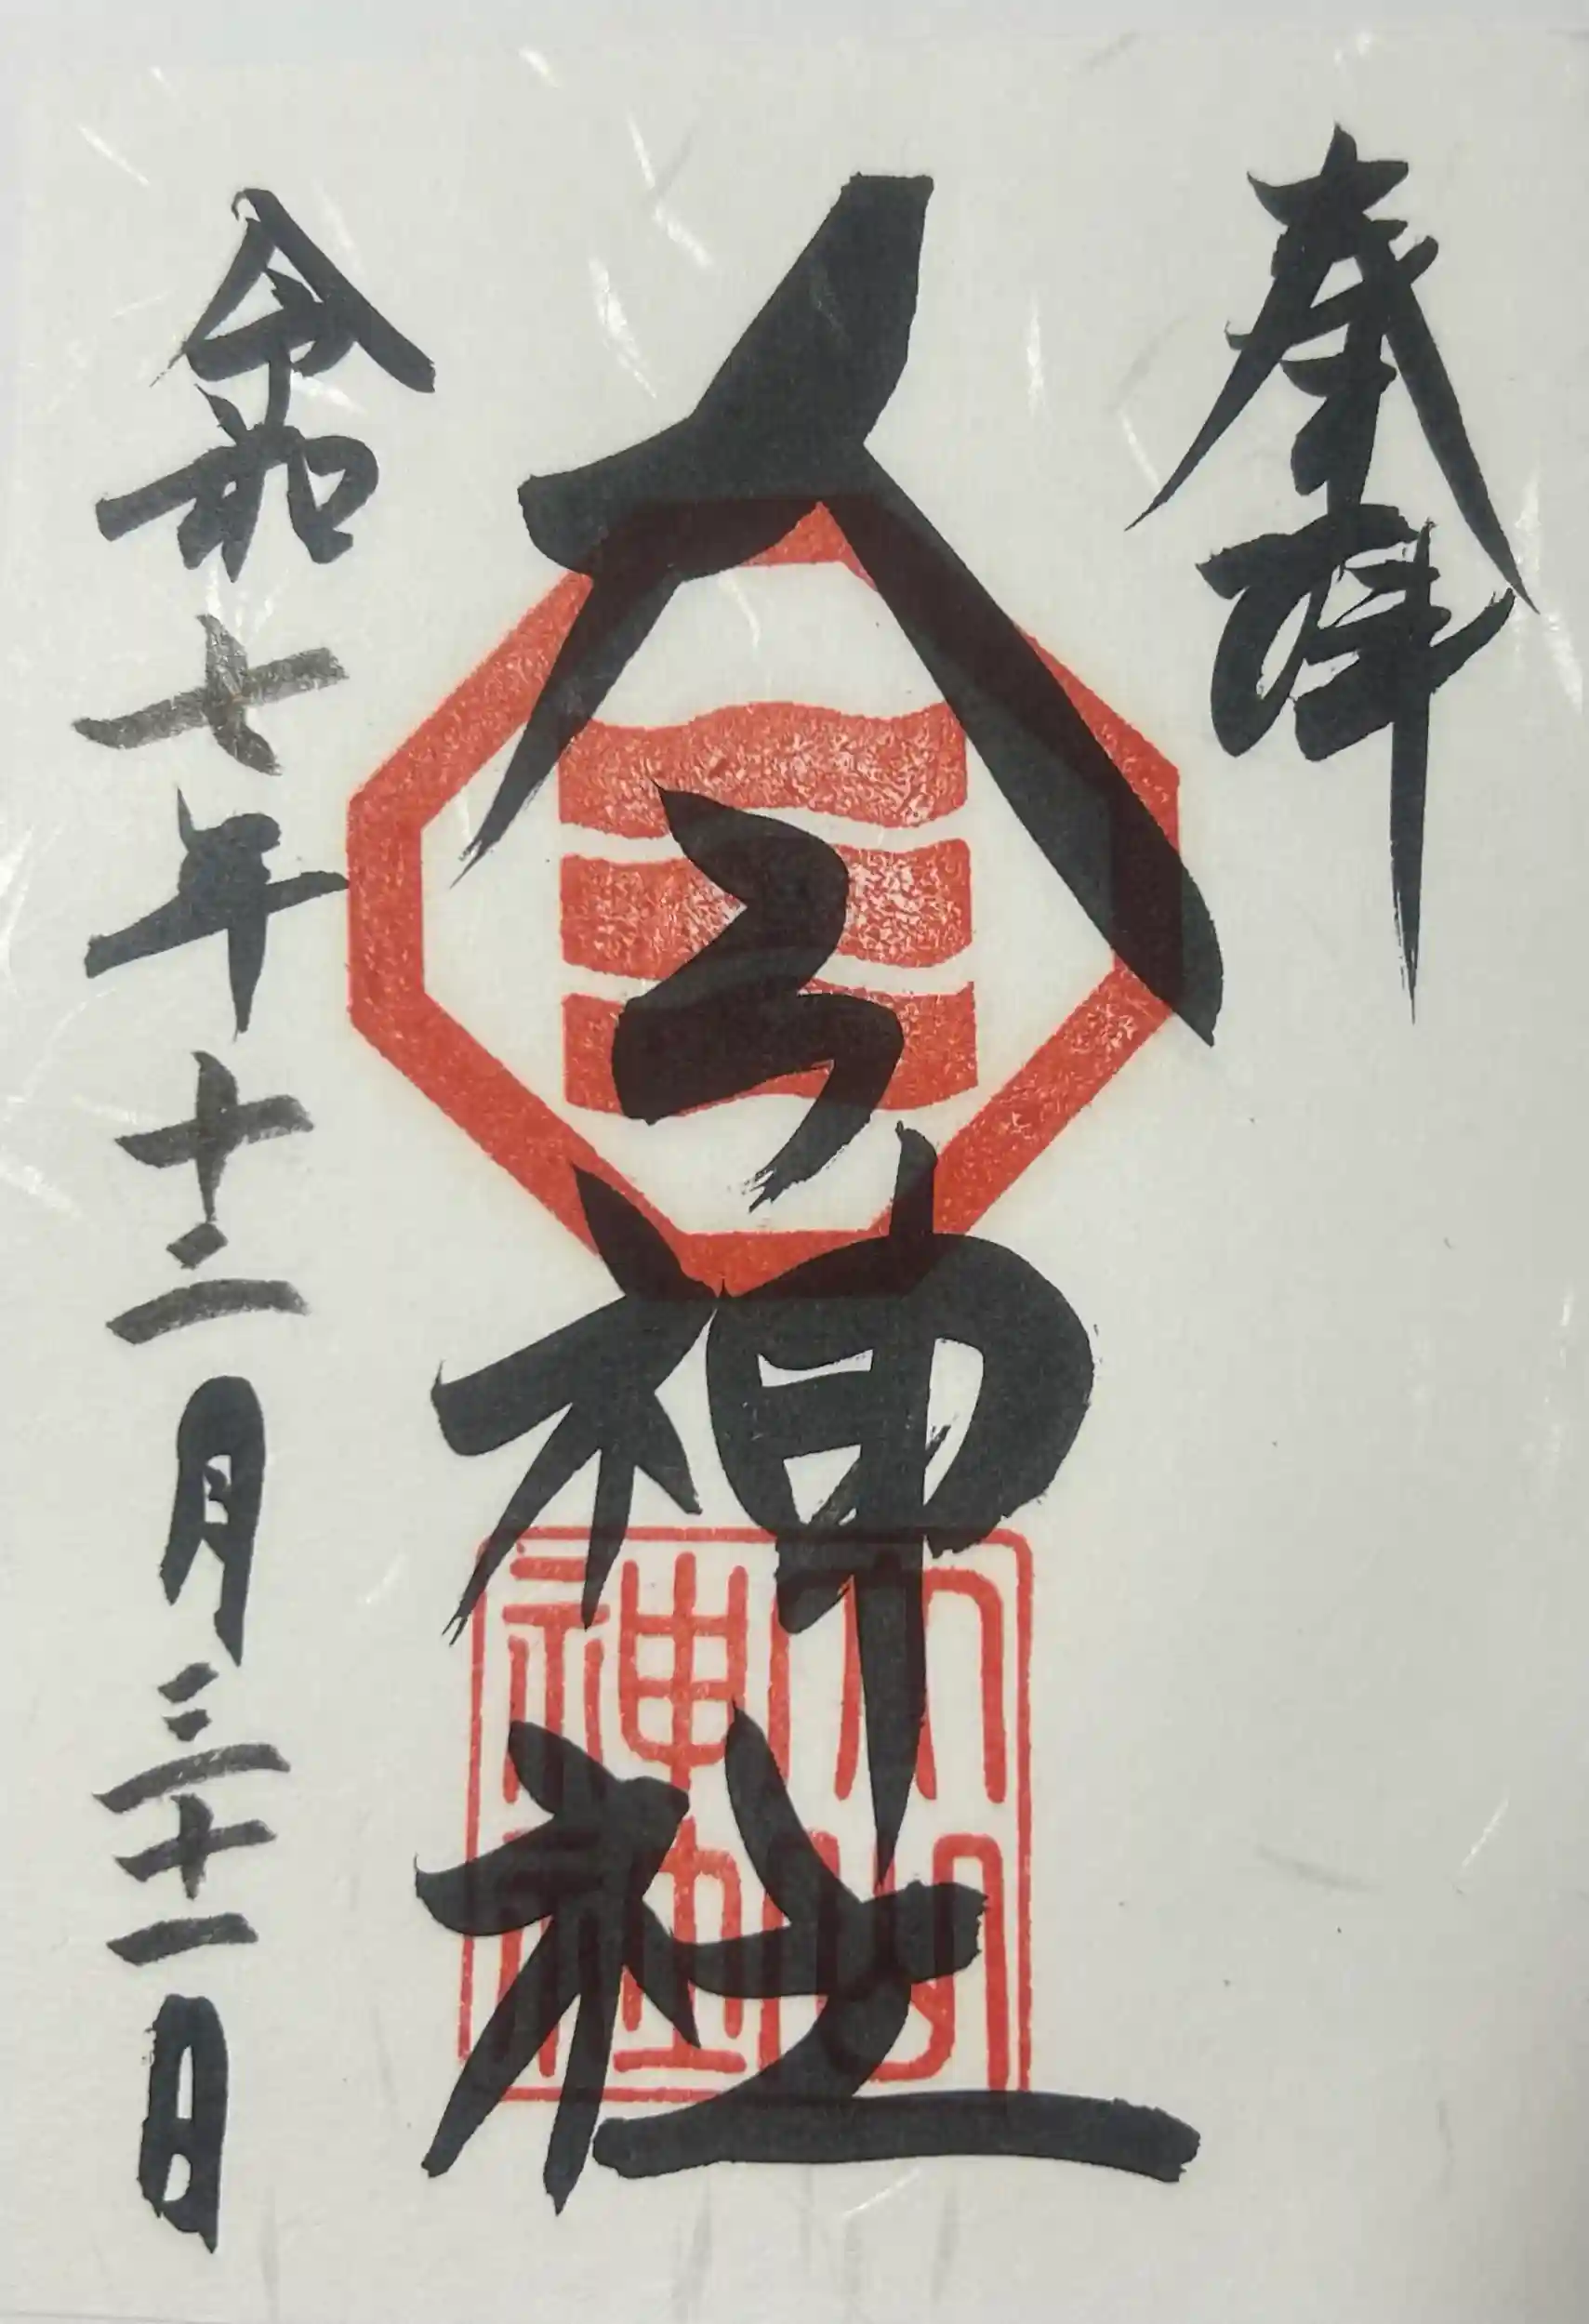 奉拝
大山神社
令和七年十二月三十一日
大山
神社